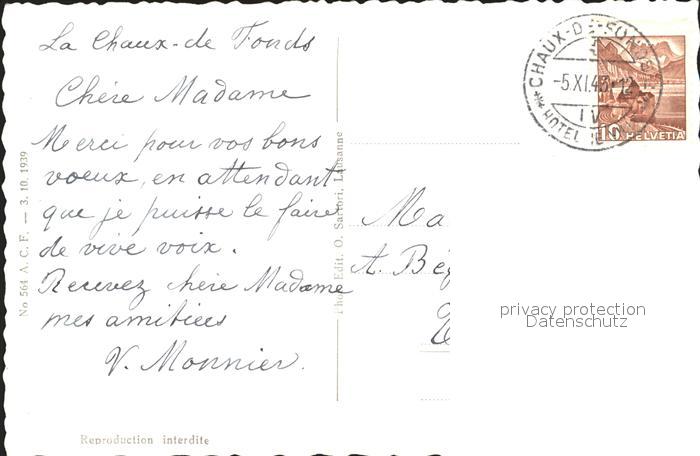 La Chaux-de Fonds
Chére Madame
Merci pour vos bons
voeux, en attendant
que je puisse le faire
de vive voix.
Recevez chère Madame
mes amitiées
V. Monnier.
Reproduction interdite
No 564 A. C. F. — 3. 10. 1939
Edit. O. Sartori, Lausanne
CHAUX-DE-FONDS
-5.XI.43
HOTEL
10 HELVETIA
Ma
A. Bé
privacy protection
Datenschutz